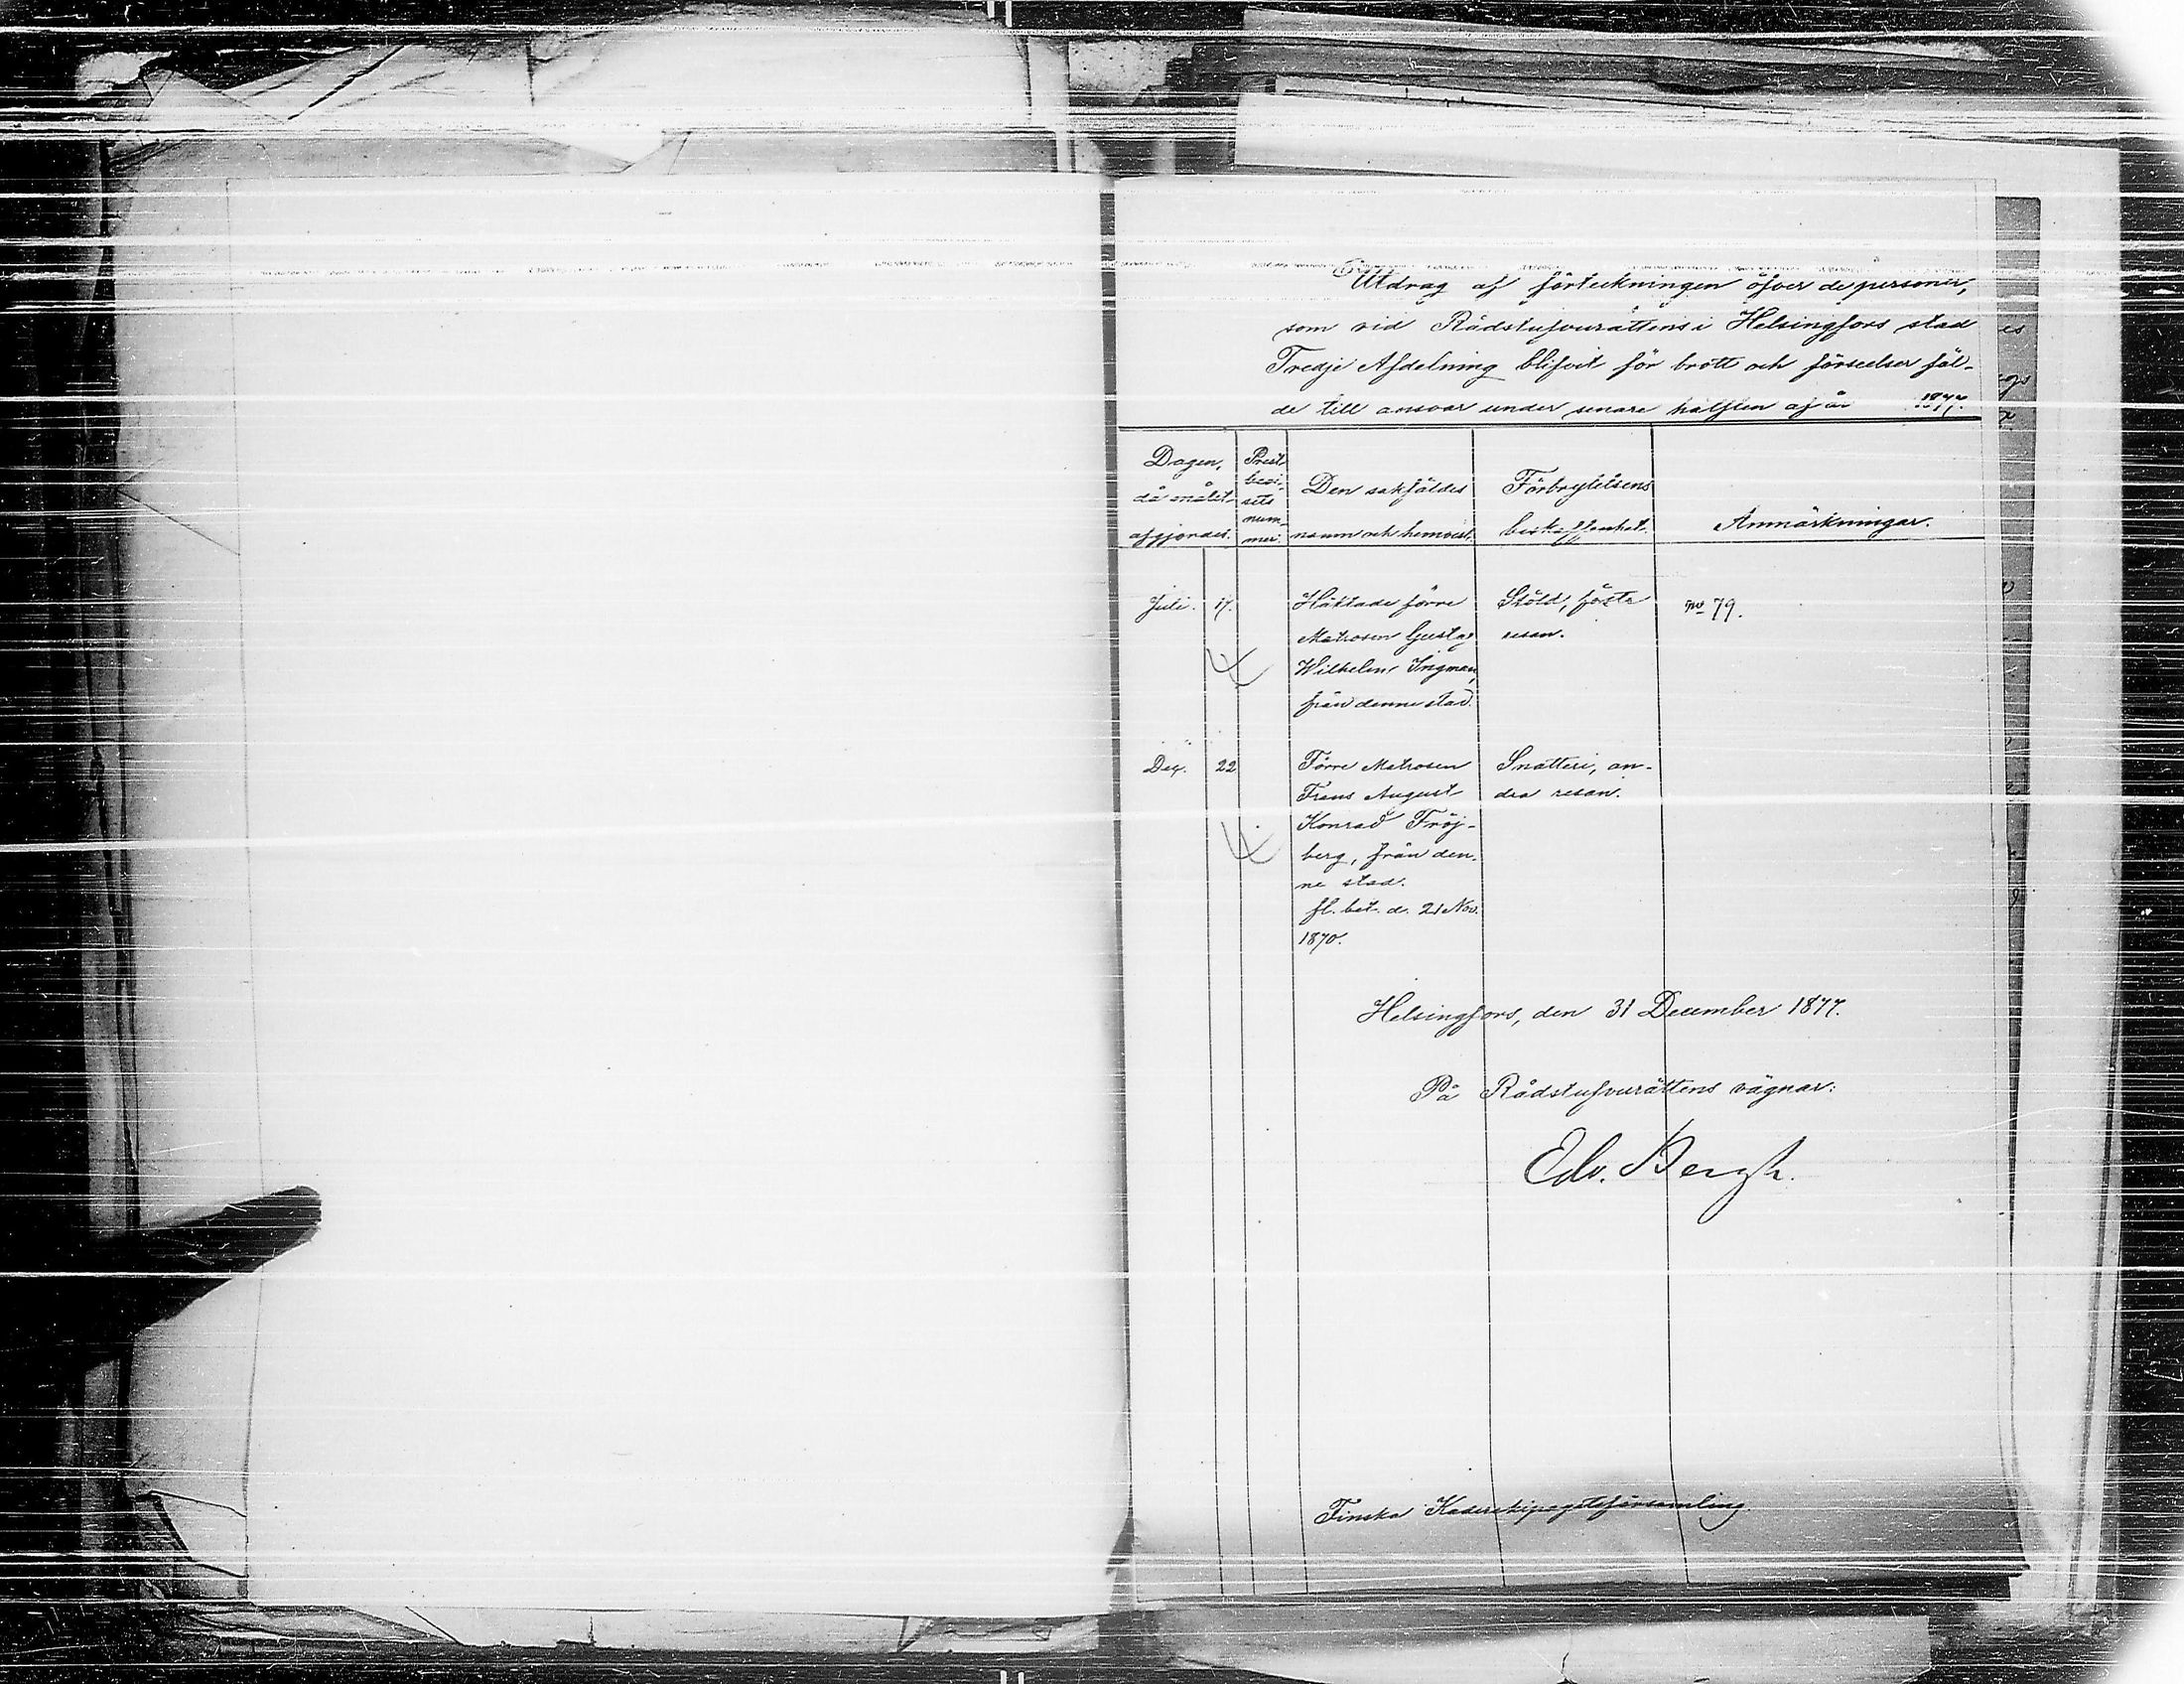 Utdrag af förteckningen öfver de personer,
som vid Rådstufvurättens i Helsingfors stad
Tredje Afdelning blifvit för brott och förseelser fäl-
de till ansvar under senare hälften af år 1877.
Dagen,
då målet
afgjordes.
Prest-
bevi-
sets
num-
mer.
Den sakfäldes
namn och hemvist.
Förbrytelsens
beskaffenhet.
Anmärkningar.
Juli. 17. Häktade förre Stöld, första No 79.
Matrosen Gustaf resan.
Wilhelm Ingman,
från denne stad.
Dec. 22 Förre Matrosen Snatteri, an-
Frans August dra resan.
Konrad Fröj-
berg, från den-
ne stad.
fl. bet. d. 21 Nov.
1870.
Helsingfors, den 31 December 1877.
På Rådstufvurättens vägnar:
Edv. Bergh.
Finska församling.